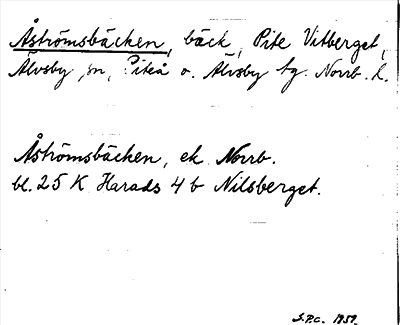 Åströmsbäcken, bäck, Pite Vitberget,
Älvsby sn, Piteå o. Älvsby tg. Norrb. l.
Åströmsbäcken, ek Norrb.
bl. 25 K Harads 4 b Nilsberget.
S.P.C. 1959.